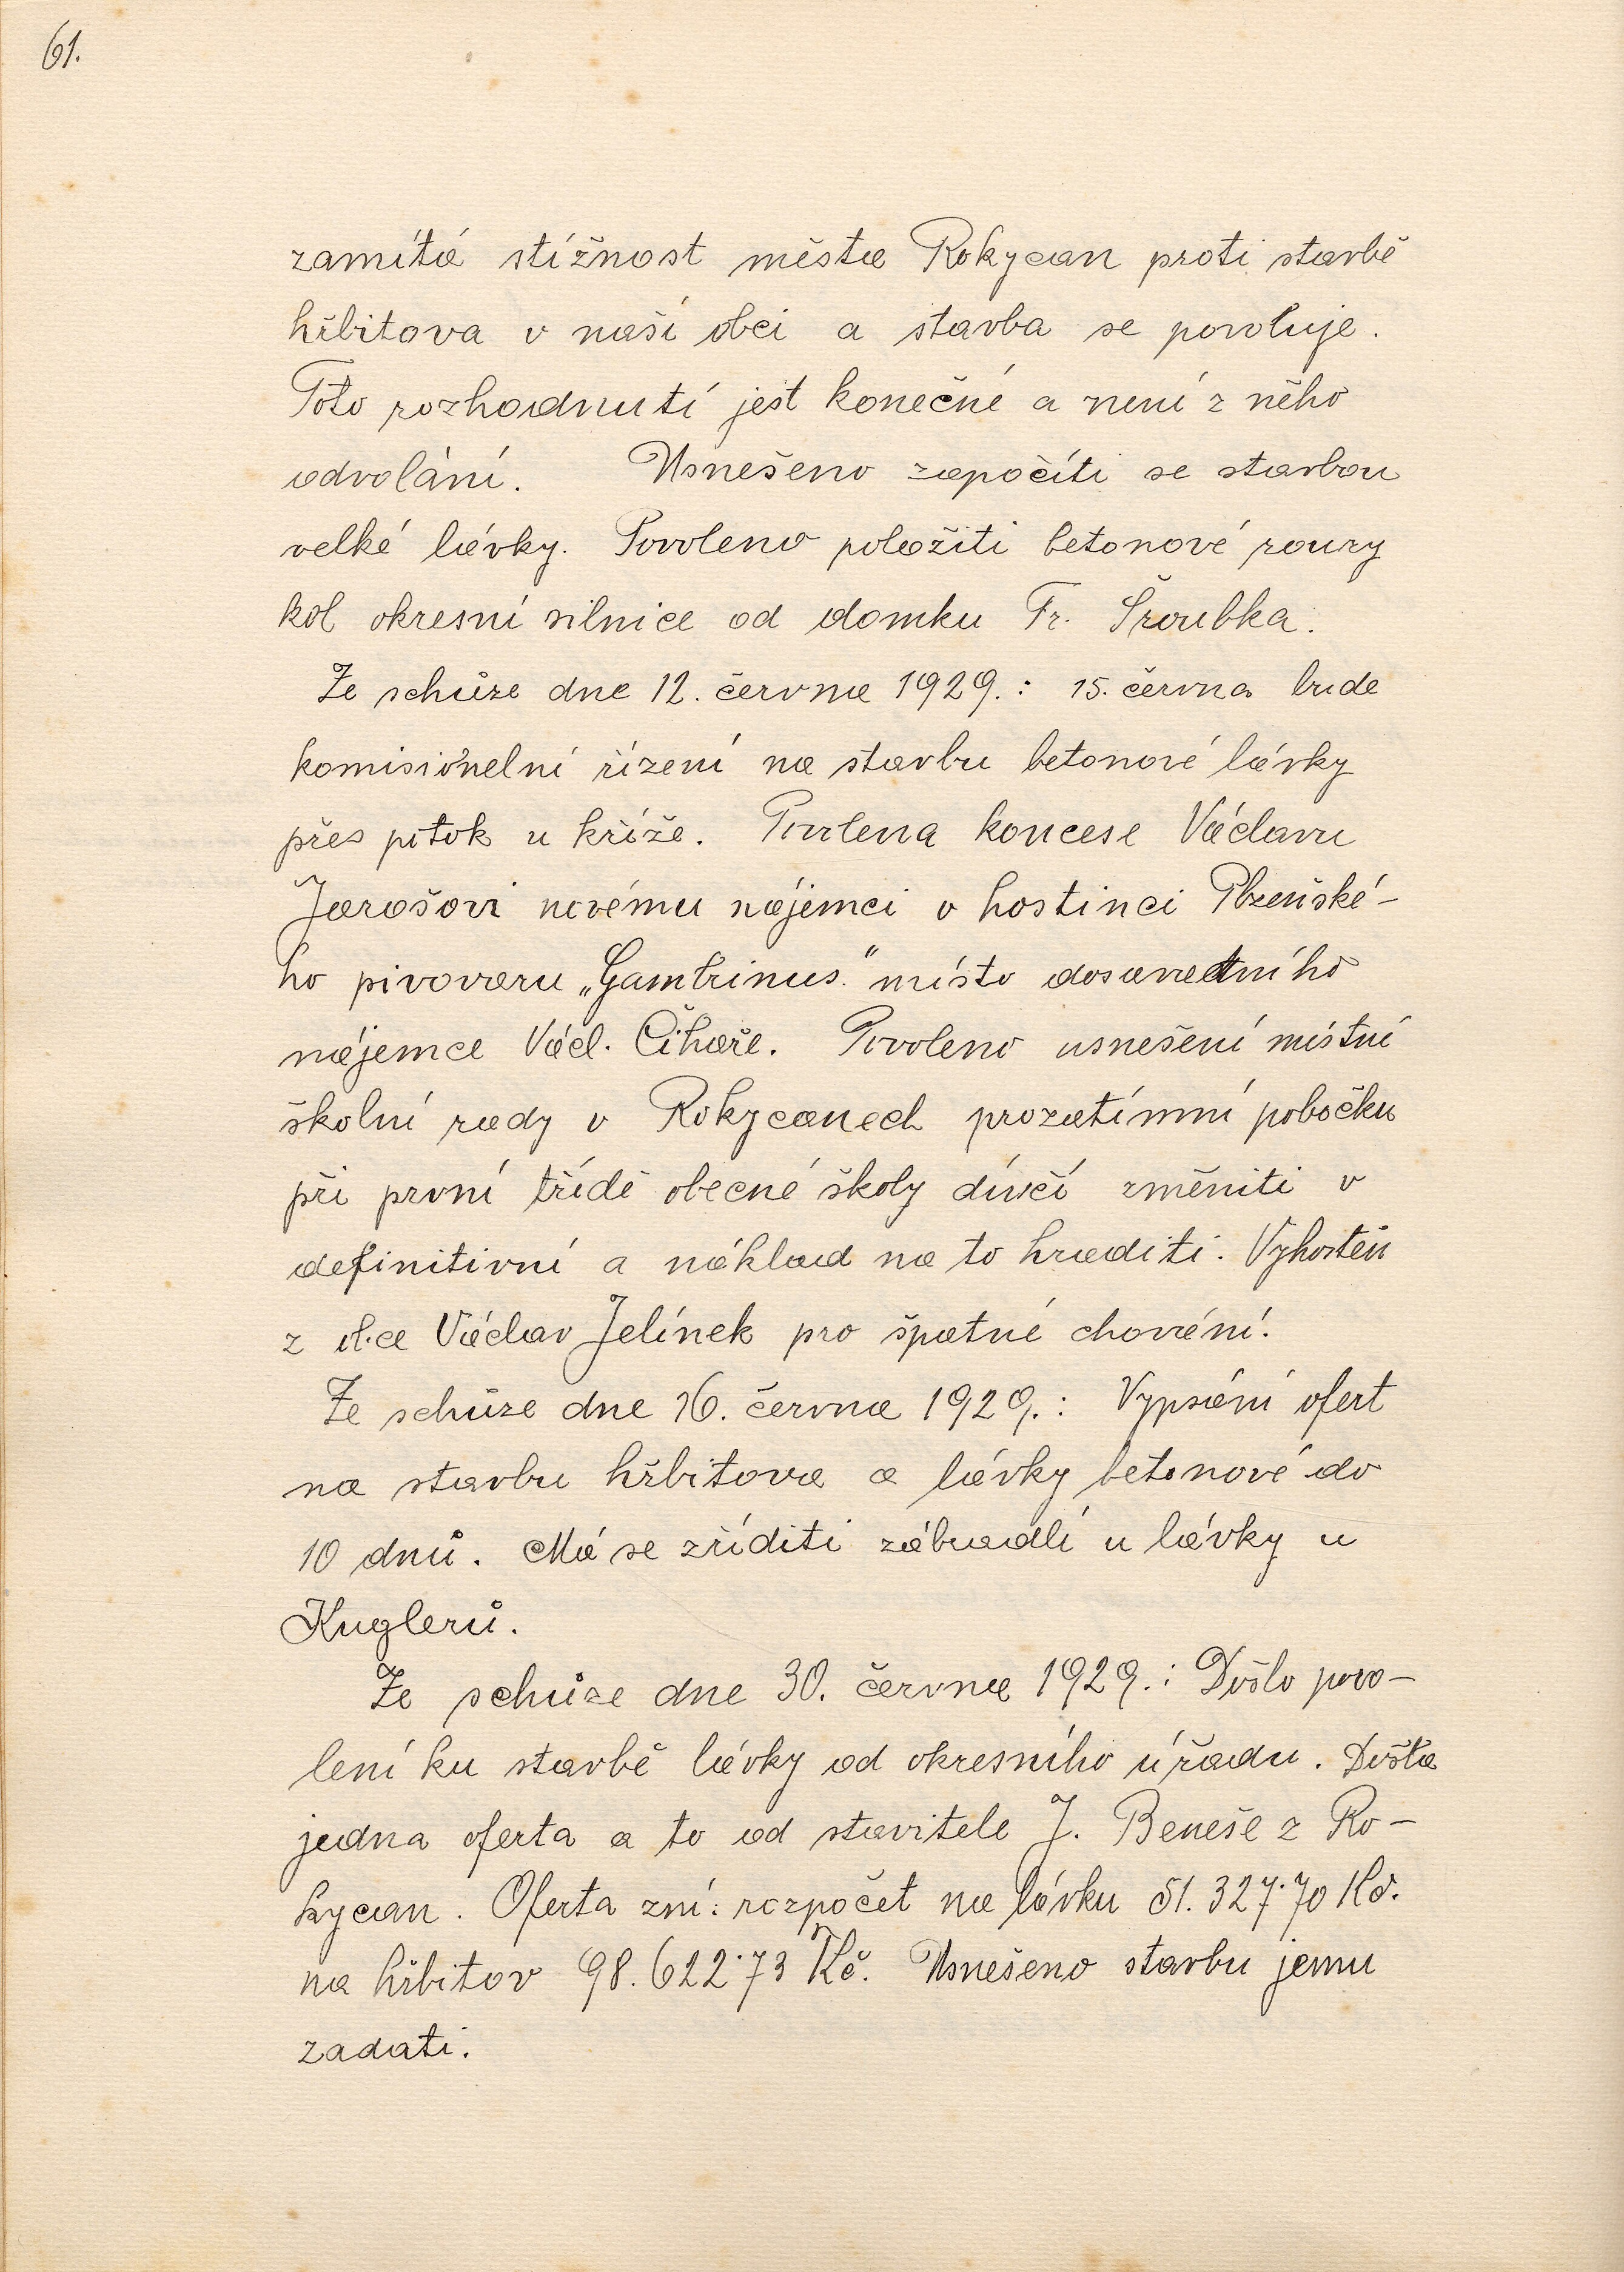 61.
zamítá stížnost města Rokycan proti stavbě
hřbitova v naší obci a stavba se povoluje.
Toto rozhodnutí jest konečné a není z něho
odvolání. Usnešeno započíti se stavbou
velké lávky. Povoleno položiti betonové roury
kol okresní silnice od domku Fr. Šroubka.
Ze schůze dne 12. června 1929.: 15. června bude
komisionelní řízení na stavbu betonové lávky
přes potok u kříže. Povolena koncese Václavu
Jarošovi novému nájemci v hostinci Plzeňské-
ho pivovaru „Gambrinus.“ místo dosavadního
nájemce Václ. Čihaře. Povoleno usnešení místní
školní rady v Rokycanech prozatímní pobočku
při první třídě obecné školy dívčí změniti v
definitivní a náklad na to hraditi. Vyhostěn
z obce Václav Jelínek pro špatné chování.
Ze schůze dne 16. června 1929.: Vypsání ofert
na stavbu hřbitova a lávky betonové do
10 dnů. Má se zříditi zábradlí u lávky u
Kuglerů.
Ze schůze dne 30. června 1929.: Došlo povo-
lení ku stavbě lávky od okresního úřadu. Došla
jedna oferta a to od stavitele J. Beneše z Ro-
kycan. Oferta zní: rozpočet na lávku 51.327·70 Kč.
na hřbitov 98.622·73 Kč. Usnešeno stavbu jemu
zadati.